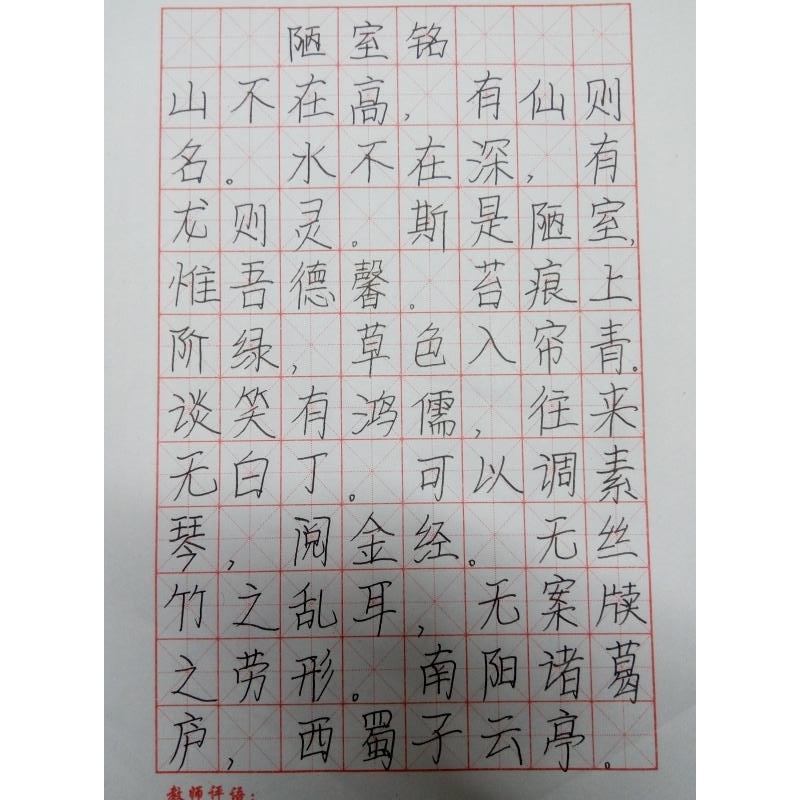 陋室铭
山不在高，有仙则
名。水不在深，有
龙则灵。斯是陋室，
惟吾德馨。苔痕上
阶绿，草色入帘青。
谈笑有鸿儒，往来
无白丁。可以调素
琴，阅金经。无丝
竹之乱耳，无案牍
之劳形。南阳诸葛
庐，西蜀子云亭。
教师评语：